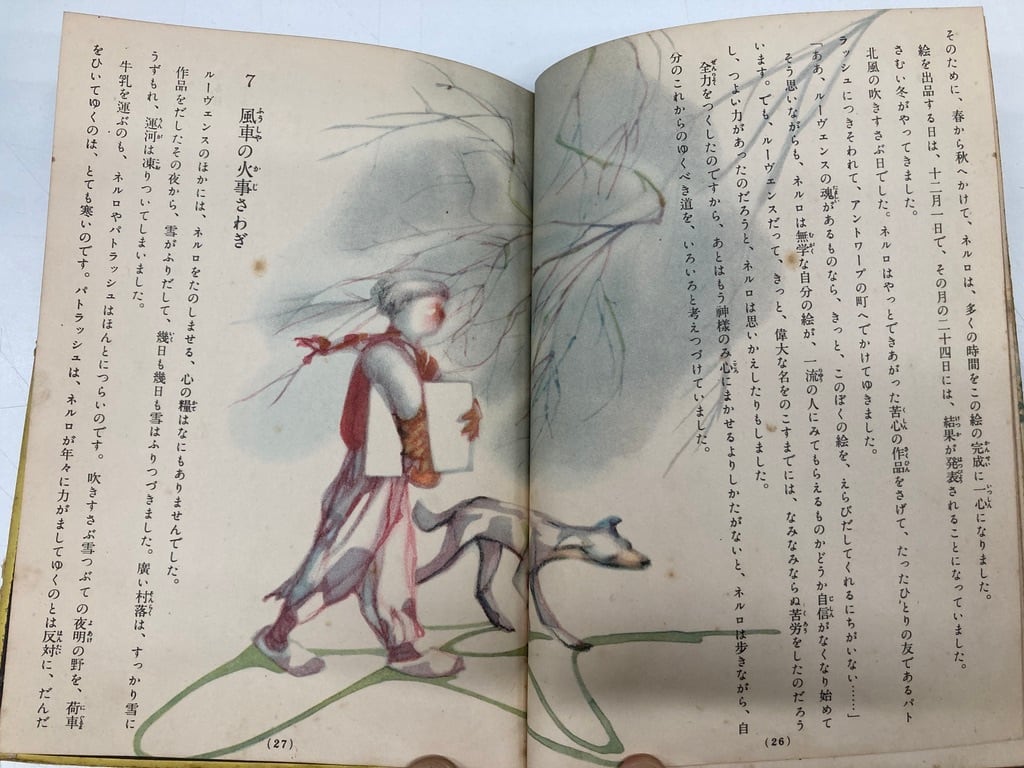 そのために、春から秋へかけて、ネルロは、多くの時間をこの絵の完成に一心になりました。
絵を出品する日は、十二月一日で、その月の二十四日には、結果が発表されることになっていました。
さむい冬がやってきました。
北風の吹きすさぶ日でした。ネルロはやっとできあがった苦心の作品をさげて、たったひとりの友であるパト
ラッシュにつきそわれて、アントワープの町へでかけてゆきました。
「ああ、ルーヴェンスの魂があるものなら、きっと、このぼくの絵を、えらびだしてくれるにちがいない……」
そう思いながらも、ネルロは無学な自分の絵が、一流の人にみてもらえるものかどうか自信がなくなり始めて
います。でも、ルーヴェンスだって、きっと、偉大な名をのこすまでには、なみなみならぬ苦労をしたのだろう
し、つよい力があったのだろうと、ネルロは思いかえしたりもしました。
全力をつくしたのですから、あとはもう神様のみ心にまかせるよりしかたがないと、ネルロは歩きながら、自
分のこれからのゆくべき道を、いろいろと考えつづけていました。
(26)
7 風車の火事さわぎ
ルーヴェンスのほかには、ネルロをたのしませる、心の糧はなにもありませんでした。
作品をだしたその夜から、雪がふりだして、幾日も幾日も雪はふりつづきました。廣い村落は、すっかり雪に
うずもれ、運河は凍りついてしまいました。
牛乳を運ぶのも、ネルロやパトラッシュはほんとにつらいのです。吹きすさぶ雪つぶての夜明の野を、荷車
をひいてゆくのは、とても寒いのです。パトラッシュは、ネルロが年々に力がましてゆくのとは反対に、だんだ
(27)